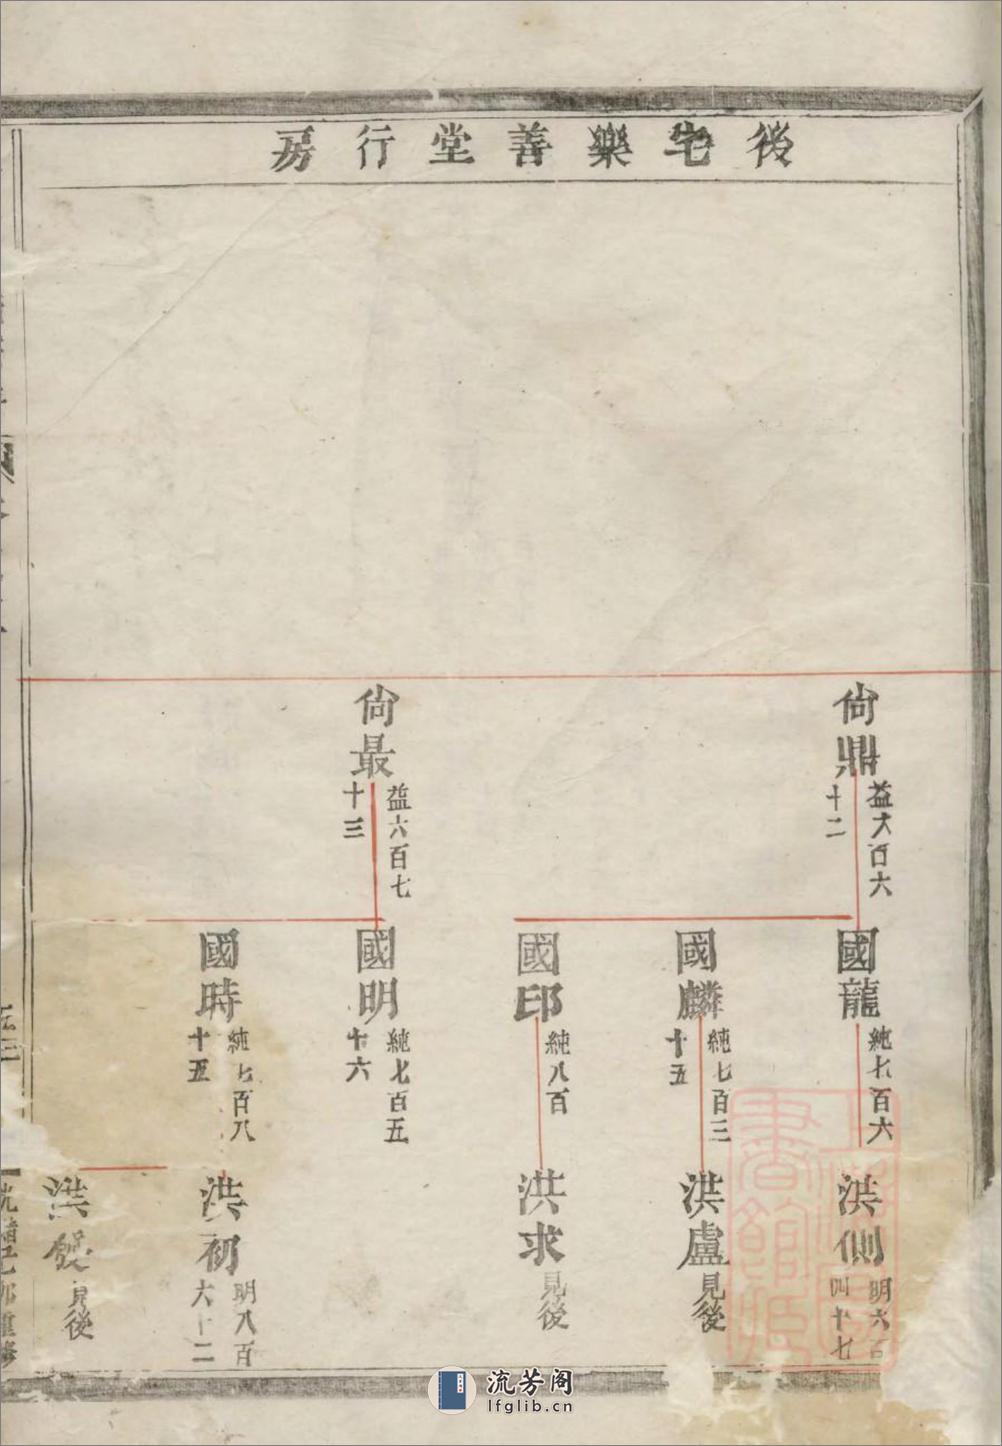 後宅樂善堂行房
尙鼎
益六百六
十二
尙最
益六百七
十三
國龍
純七百六
國麟
純七百三
十五
國邱
純八百
國明
純七百五
十六
國時
純七百八
十五
洪側
明六百
四十七
洪盧
見後
洪求
見後
洪初
明八百
六十二
洪
見後
光緒己卯重修
流芳阁
lfglib.cn